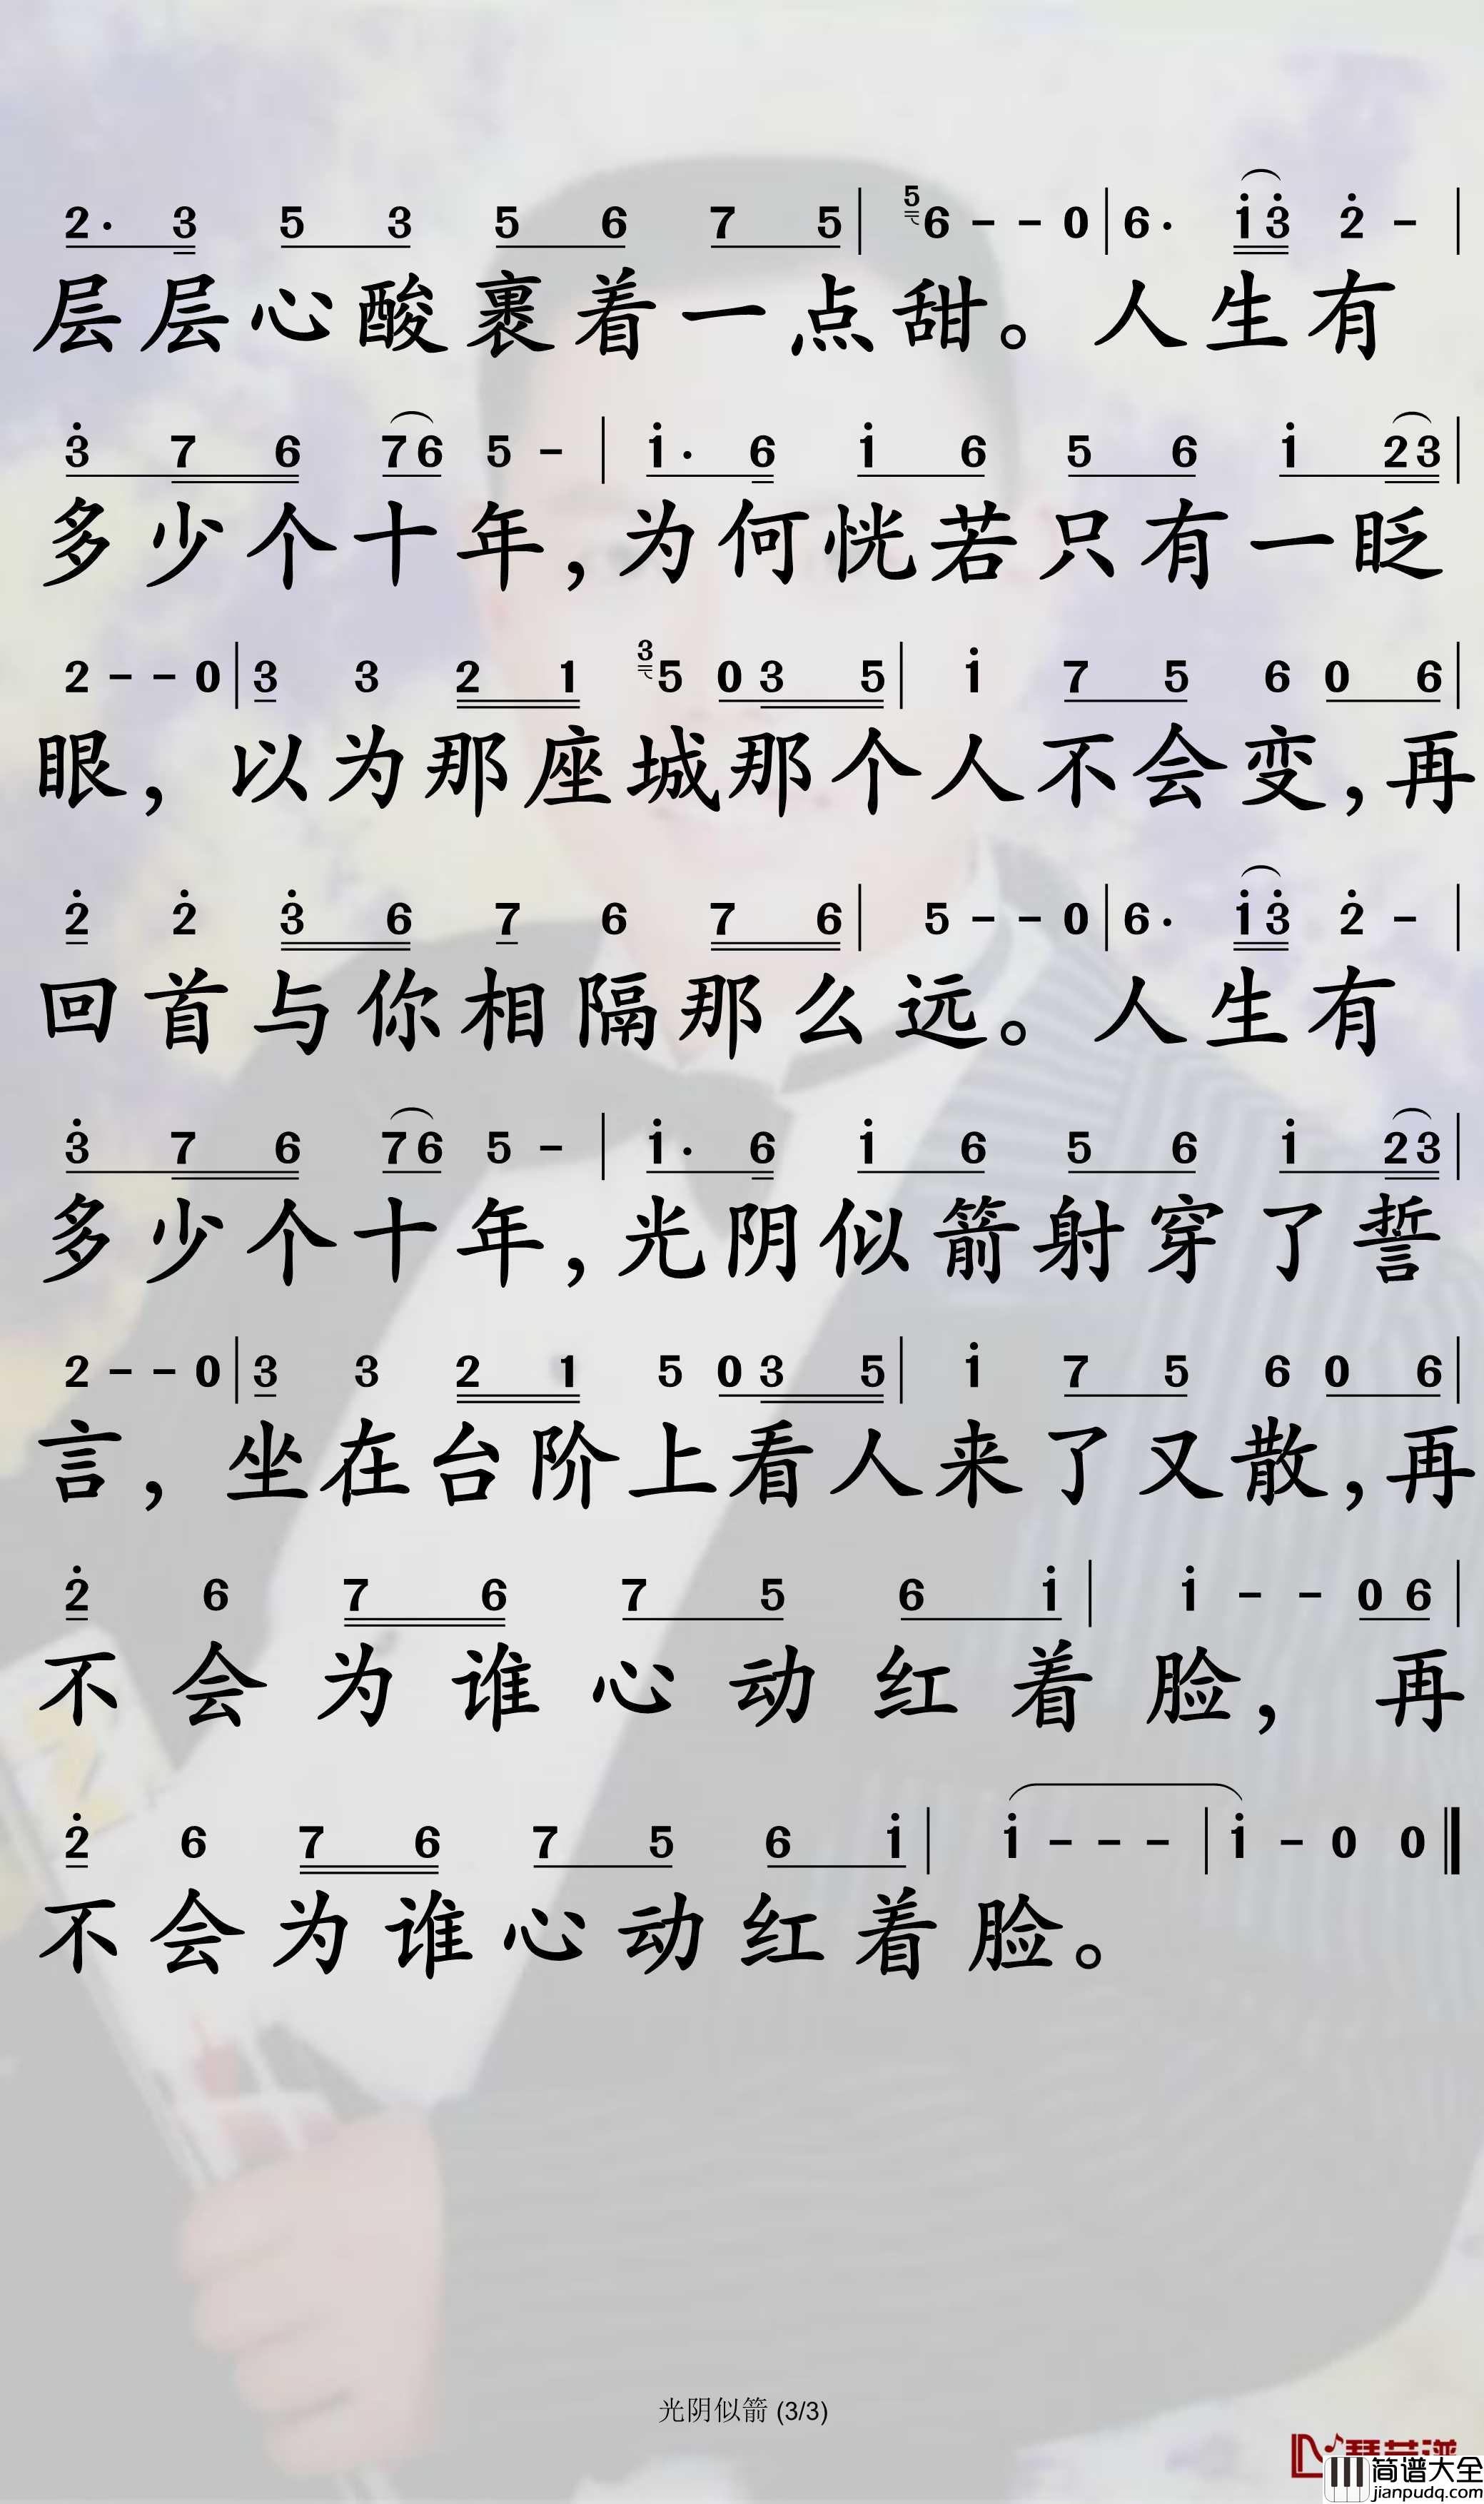 2· 3 5 3 5 6 7 5 | 5 6 - - 0 | 6· i 3 2 - |
层层心酸裹着一点甜。人生有
3 7 6 7 6 5 - | i· 6 i 6 5 6 i 2 3 |
多少个十年,为何恍若只有一眨
2 - - 0 | 3 3 2 1 3 5 0 3 5 | i 7 5 6 0 6 |
眼,以为那座城那个人不会变,再
2 2 3 6 7 6 7 6 | 5 - - 0 | 6· i 3 2 - |
回首与你相隔那么远。人生有
3 7 6 7 6 5 - | i· 6 i 6 5 6 i 2 3 |
多少个十年,光阴似箭射穿了誓
2 - - 0 | 3 3 2 1 5 0 3 5 | i 7 5 6 0 6 |
言,坐在台阶上看人来了又散,再
2 6 7 6 7 5 6 i | i - - 0 6 |
不会为谁心动红着脸,再
2 6 7 6 7 5 6 i | i - - - | i - 0 0 ‖
不会为谁心动红着脸。
光阴似箭 (3/3)
简谱大全
jianpudq.com